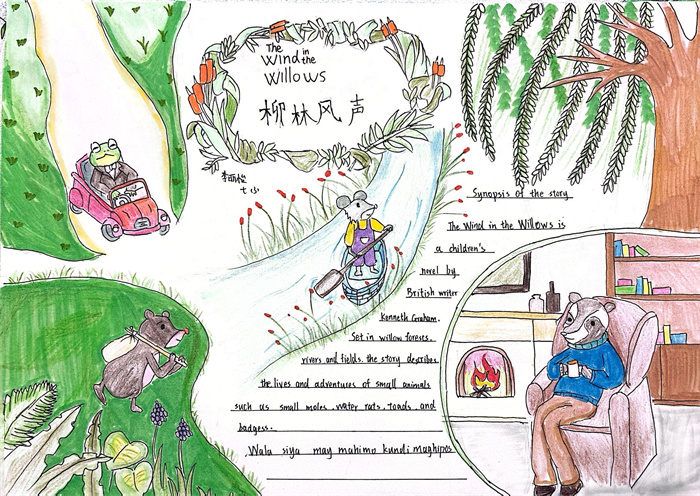 The
Wind in the
Willows
柳林风声
Synopsis of the story
The Wind in the Willows is
a children's
novel by
British writer
Konneth Graham.
Set in willow foreses.
rivers and fields. the story describes
the lives and adventures of small animals
such us small moles .water rats .toads .and
badgess.
Wala siya may mahimo kundi maghipos